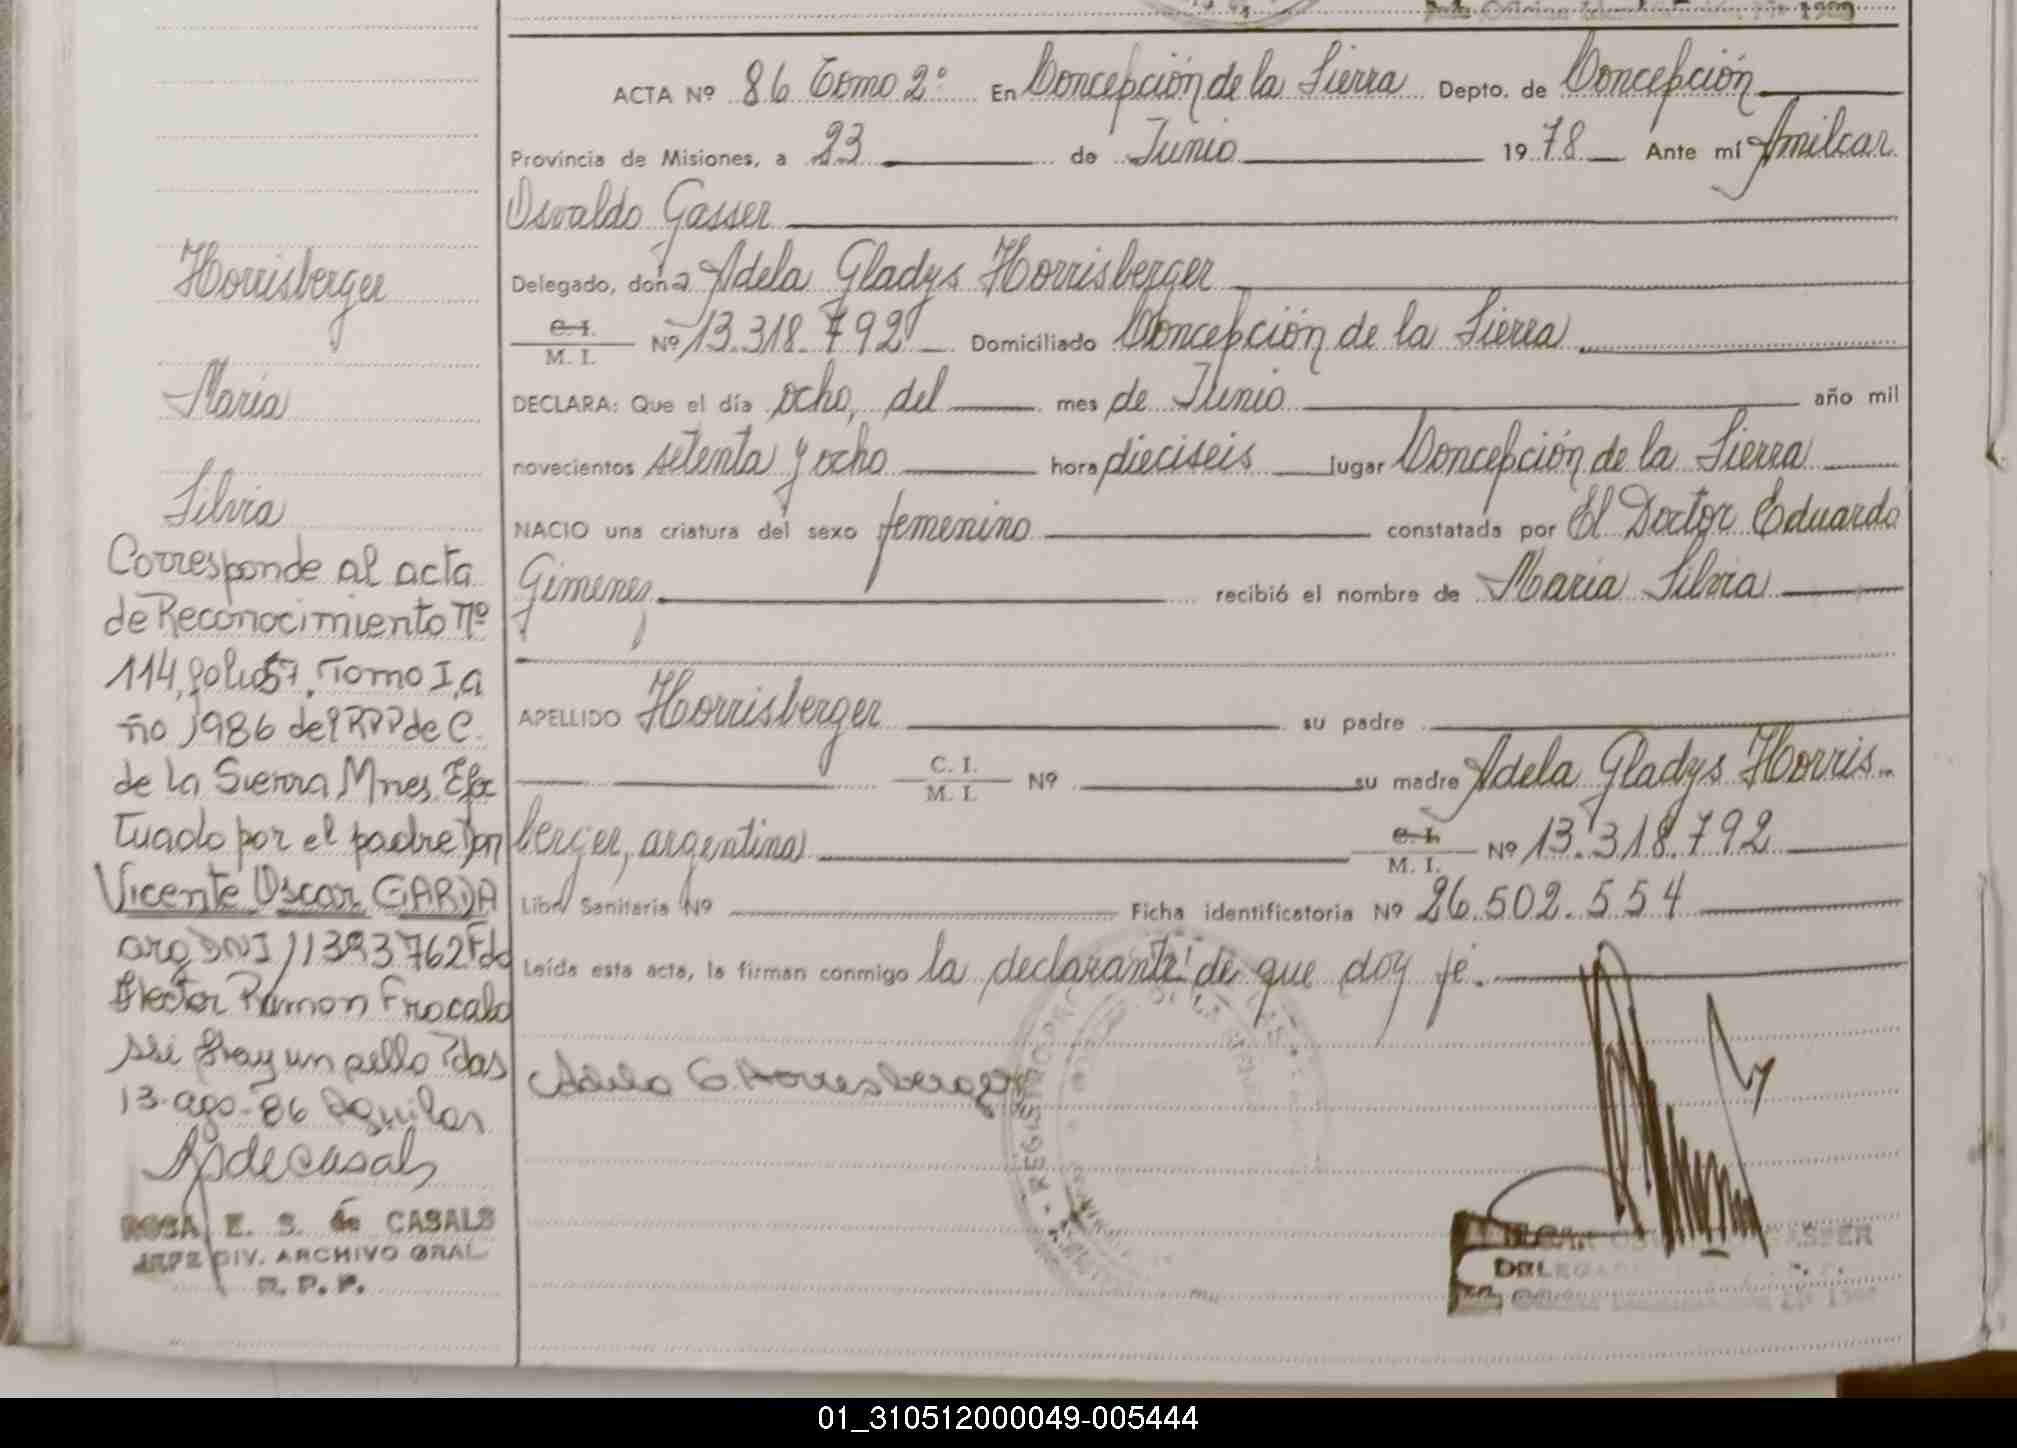 ACTA Nº 86 Tomo 2º En Concepción de la Sierra Depto. de Concepción
Provincia de Misiones, a 23 de Junio 1978 Ante mí Amilcar
Osvaldo Gasser
Delegado, doña Adela Gladys Horrisberger
C. I.
M. I. Nº 13.318.792 Domiciliado Concepción de la Sierra
DECLARA: Que el día ocho, del mes de Junio año mil
novecientos setenta y ocho hora dieciseis lugar Concepción de la Sierra
NACIO una criatura del sexo femenino constatada por El Doctor Eduardo
Gimenez recibió el nombre de Maria Silvia
APELLIDO Horrisberger su padre
C. I.
M. I. Nº su madre Adela Gladys Horris-
berger, argentina C. I.
M. I. Nº 13.318.792
Libr. Sanitaria Nº Ficha identificatoria Nº 26.502.554
Leída esta acta, la firman conmigo la declarante de que doy fé.
Adela G. Horrisberger
REGISTRO
DELEGA
Horrisberger
Maria
Silvia
Corresponde al acta
de Reconocimiento nº
114, folio 57, Tomo I, a
ño 1986 del RPP de C.
de la Sierra Mnes. Efec
tuado por el padre Don
Vicente Oscar GARDA
arg DNI 11393762 Fdo
Hector Ramon Frocalo
ssi hay un sello Pdas
13-ago-86 Aguilar
RdeCasals
ROSA E. S. de CASALS
JEFE DIV. ARCHIVO GRAL
R. P. P.
01_310512000049-005444